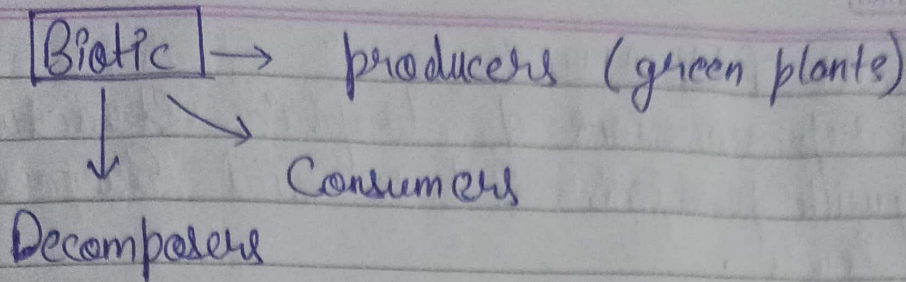 Biotic → producers (green plants)
Consumers
Decomposers